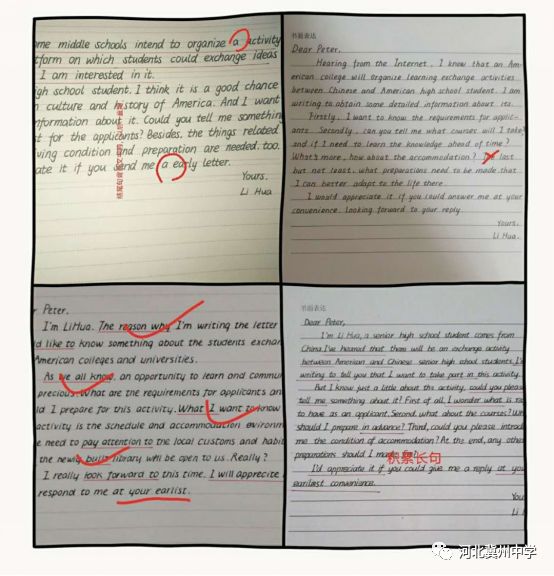 ome middle schools intend to organize a activity
tform on which students could exchange ideas
I am interested in it.
igh school student. I think it is a good chance
n culture and history of America. And I want
nformation about it. Could you tell me something
t for the applicants? Besides, the things related
iving condition and preparation are needed, too.
ate it if you send me a early letter.
Yours.
Li Hua
书面表达
Dear Peter.
Hearing from the Internet, I know that an Am-
erican college will organize learning exchange activities
between Chinese and American high school student. I am
writing to obtain some detailed information about its.
Firstly, I want to know the requirements for applic-
ants. Secondly, can you tell me what courses will I take?
and if I need to learn the knowledge ahead of time?
What's more, how about the accommodation? last
but not least, what preparations need to be made that
I can better adapt to the life there.
I would appreciate it if you could answer me at your
convenience. Looking forward to your reply.
Yours.
Li Hua.
r Peter.
I'm LiHua. The reason why I'm writing the letter
ld like to know something about the students exchan
American colleges and universities.
As we all know, an opportunity to learn and commun
precious. What are the requirements for applicants an
ld I prepare for this activity. What I want to know
activity is the schedule and accommodation environm
e need to pay attention to the local customs and habit
the newly built library will be open to us. Really?
I really look forward to this time. I will appreciate
respond to me at your earlist.
书面表达
Dear Peter,
I'm Li Hua, a senior high school student comes from
China. I've heard that there will be an exchange activity
between American and Chinese senior high school students. I'm
writing to tell you that I want to take part in this activity.
But I know just a little about the activity, could you please
tell me something about it? First of all, I wonder what is nee
to have as an applicant. Second, what about the courses? Wh
should I prepare in advance? Third, could you please introdu
me the condition of accommodation? At the end, any other
preparations should I
积累长句
I'd appreciate it if you could give me a reply at you
earliest convenience.
You
Li H
河北冀州中学